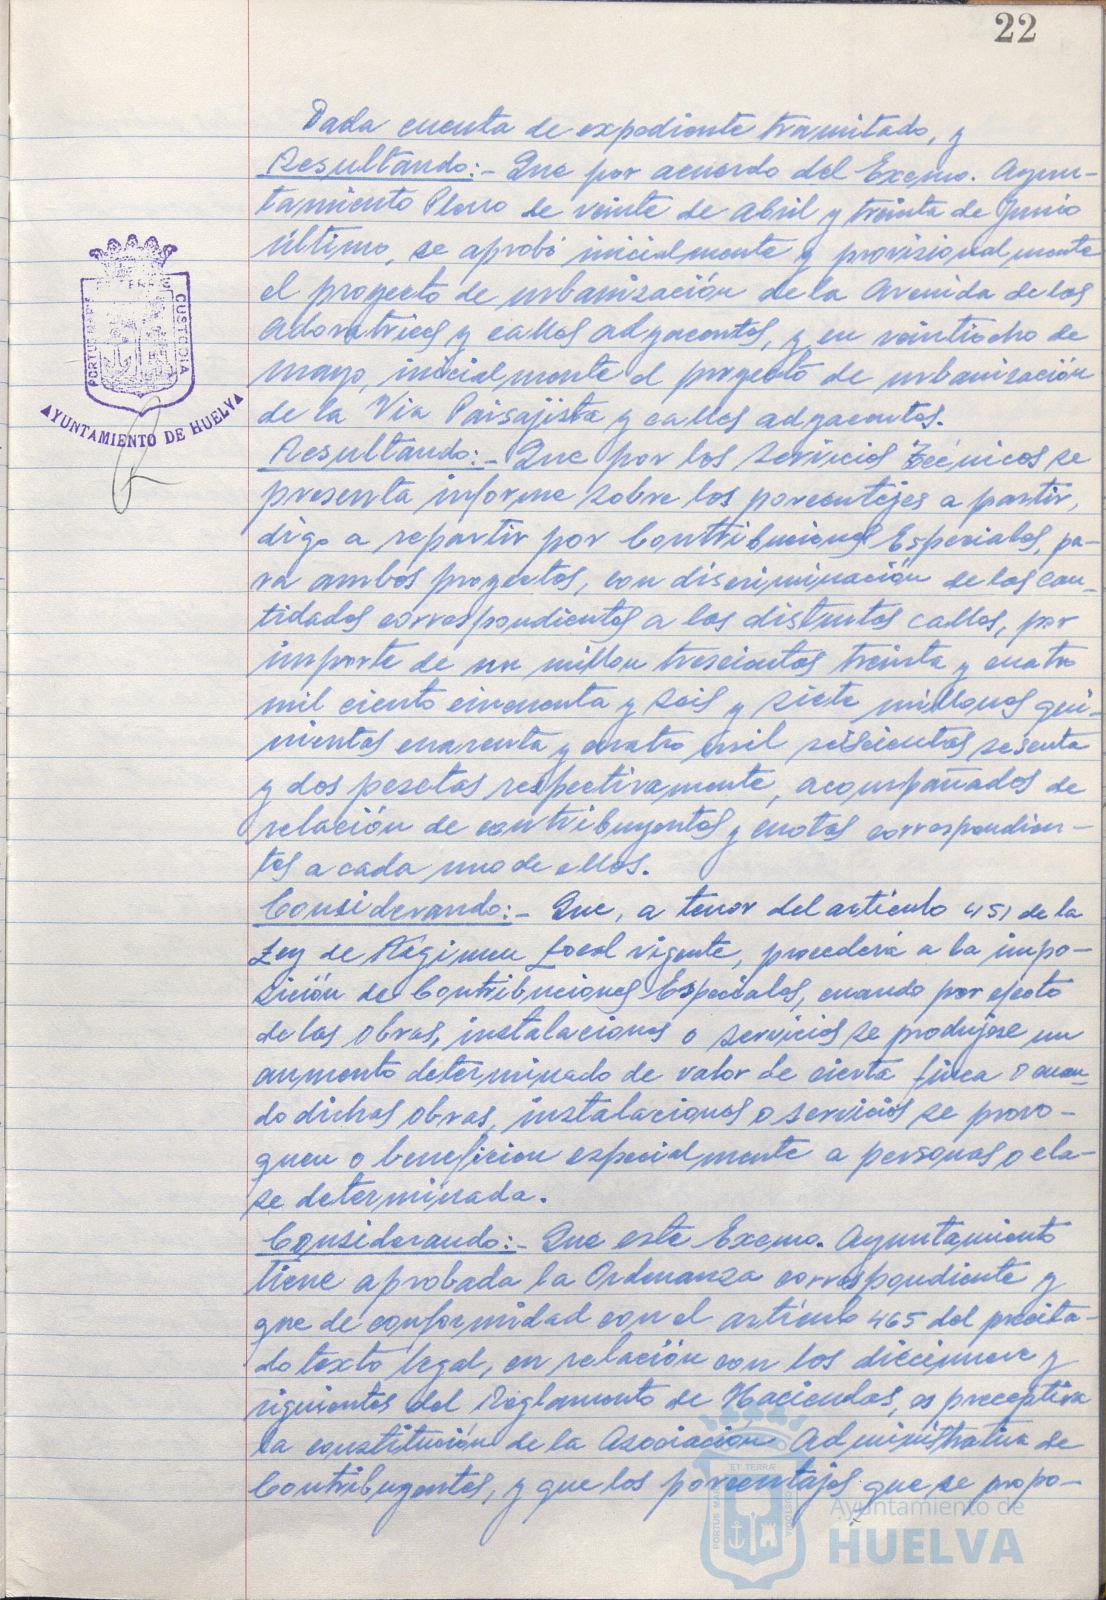 22
Dada cuenta de expediente tramitado, y
Resultando:- Que por acuerdo del Excmo. Ayun-
tamiento Pleno de veinte de Abril y treinta de Junio
último, se aprobó inicialmente y provisionalmente
el proyecto de urbanización de la Avenida de las
Adoratrices y calles adyacentes, y en veintiocho de
mayo, inicialmente el proyecto de urbanización
de la Via Paisajista y calles adyacentes.
Resultando:- Que por los Servicios Técnicos se
presenta informe sobre los porcentajes a partir,
digo a repartir por Contribuciones Especiales, pa-
ra ambos proyectos, con discriminación de las can-
tidades correspondientes a las distintas calles, por
importe de un millon trescientas treinta y cuatro
mil ciento cincuenta y seis y siete millones qui-
nientas cuarenta y cuatro mil seiscientas sesenta
y dos pesetas respectivamente, acompañados de
relación de contribuyentes y cuotas correspondien-
tes a cada uno de ellos.
Considerando:- Que, a tenor del artículo 451 de la
Ley de Régimen Local vigente, procederá a la impo-
sición de Contribuciones Especiales, cuando por efecto
de las obras, instalaciones o servicios se produjese un
aumento determinado de valor de cierta finca o cuan-
do dichas obras, instalaciones o servicios se provo-
quen o beneficien especialmente a personas o cla-
se determinada.
Considerando:- Que este Excmo. Ayuntamiento
tiene aprobada la Ordenanza correspondiente y
que de conformidad con el artículo 465 del precita-
do texto legal, en relación con los diecinueve y
siguientes del Reglamento de Haciendas, es preceptiva
la constitución de la Asociación Administrativa de
Contribuyentes, y que los porcentajes que se propo-
PORTUS MARIS
ET TERRE
CUSTODIA
AYUNTAMIENTO DE HUELVA
PORTUS MARIS
ET TERRÆ
CUSTODIA
Ayuntamiento de
HUELVA